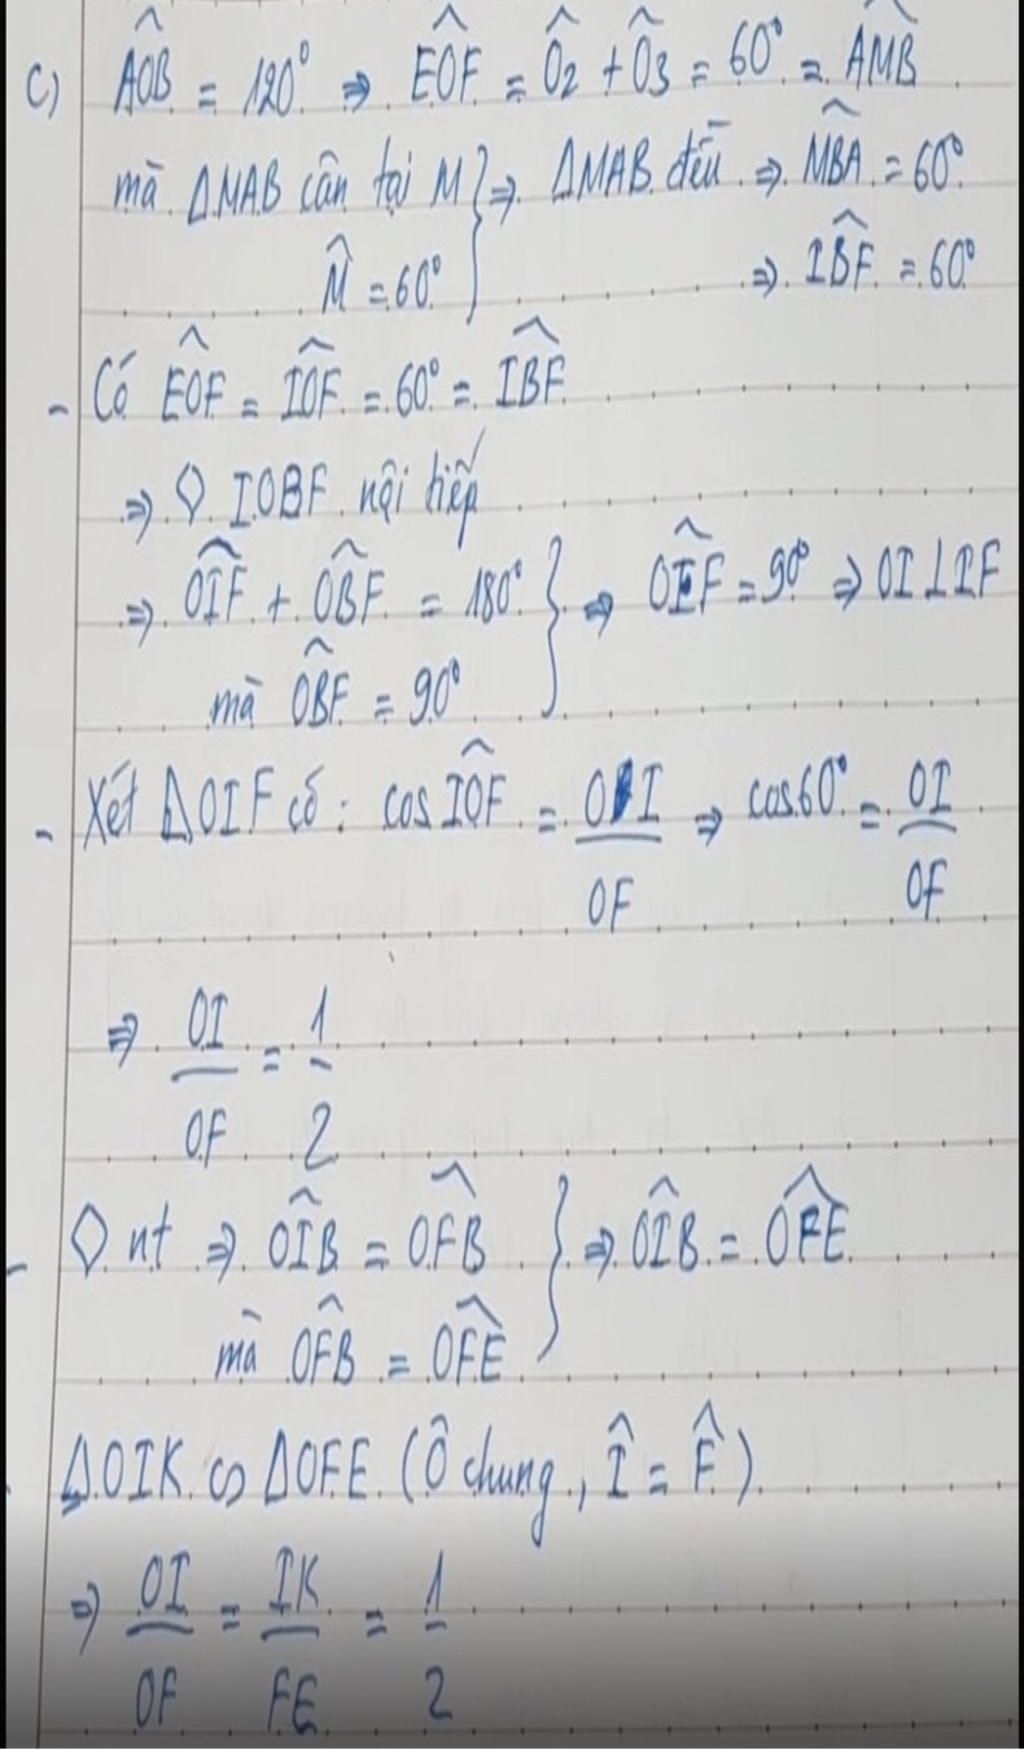 c) AÔB = 120° ⇒ EÔF = Ô2 + Ô3 = 60° = AM̂B
mà ΔMAB cân tại M } ⇒ ΔMAB đều ⇒ MB̂A = 60°
M̂ = 60° ⇒ IB̂F = 60°
- Có EÔF = IÔF = 60° = IB̂F
⇒ ◊ IOBF nội tiếp
⇒ OÎF + OB̂F = 180° } ⇒ OÎF = 90° ⇒ OI ⊥ IF
mà OB̂F = 90°
- Xét ΔOIF có : cos IÔF = OI/OF ⇒ cos 60° = OI/OF
⇒ OI/OF = 1/2
- ◊ nt ⇒ OÎB = OF̂B } ⇒ OÎB = OF̂E
mà OF̂B = OF̂E
ΔOIK ∽ ΔOFE (Ô chung, Î = F̂)
⇒ OI/OF = IK/FE = 1/2